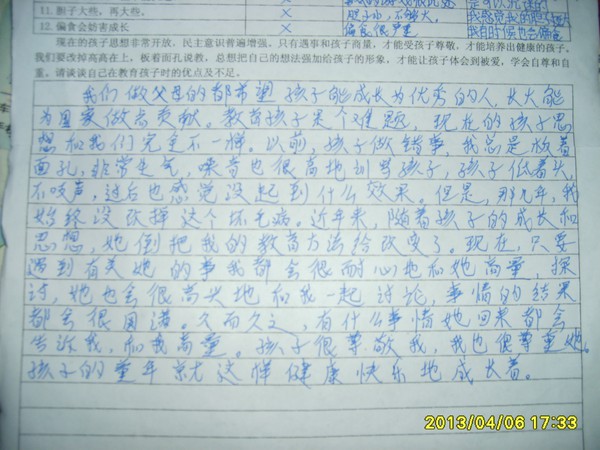 11. 胆子大些，再大些。 × 胆子小，不够大。
12. 偏食会妨害成长 × 偏食很严重
现在的孩子思想非常开放，民主意识普遍增强，只有遇事和孩子商量，才能受孩子尊敬，才能培养出健康的孩子，
我们要改掉高高在上，板着面孔说教，总想把自己的想法强加给孩子的形象，才能让孩子体会到被爱，学会自尊和自
重。请谈谈自己在教育孩子时的优点及不足。
我们做父母的都希望孩子能成长为优秀的人，长大能
为国家做出贡献。教育孩子是个难题，现在的孩子思
想和我们完全不一样。以前，孩子做错事，我总是板着
面孔，非常生气，嗓音也很高地训导孩子，孩子低着头，
不吱声，过后也感觉没起到什么效果。但是，那几年，我
始终没改掉这个坏毛病。近年来，随着孩子的成长和
思想，她倒把我的教育方法给改变了。现在，只要
遇到有关她的事我都会很耐心地和她商量，探
讨，她也会很高兴地和我一起讨论，事情的结果
都会很圆满。久而久之，有什么事情她回来都会
告诉我，和我商量。孩子很尊敬我，我也很尊重她。
孩子的童年就这样健康快乐地成长着。
2013/04/06 17:33